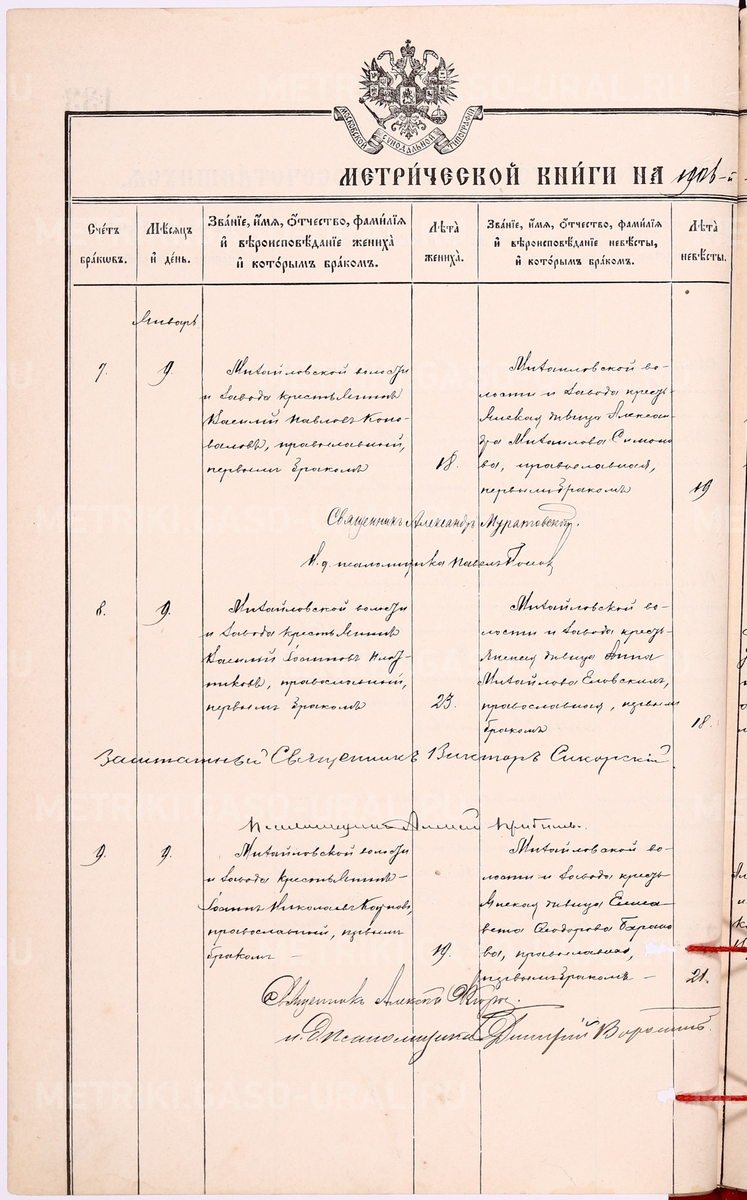 МОСКОВСКОЙ СУНОДАЛЬНОЙ ТИПОГРАФІИ
МЕТРИ́ЧЕСКОЙ КНИ́ГИ НА 1906-й
Сче́тъ бра́кωвъ.
Мѣ́сяцъ и҆ де́нь.
Зва́нїе, и҆́мя, ѻ҆́тчество, фамѝлїя и҆ вѣроисповѣ́данїе жениха̀ и҆ кото́рымъ бра́комъ.
Лѣ́та жениха̀.
Зва́нїе, и҆́мя, ѻ҆́тчество, фамѝлїя и҆ вѣроисповѣ́данїе невѣ́сты, и҆ кото́рымъ бра́комъ.
Лѣ́та невѣ́сты.
Январь
7.
9.
Михайловской волости
и завода крестьянинъ
Василий Павловъ Коно-
валовъ, православный,
первымъ бракомъ
18.
Михайловской во-
лости и завода кресть-
янская дѣвица Алексан-
дра Михайлова Симоно-
ва, православная,
первымъ бракомъ
19
Священникъ Александръ Муратовскій.
И. д. псаломщика Павелъ Поповъ
8.
9.
Михайловской волости
и завода крестьянинъ
Василий Іоанновъ Плот-
никовъ, православный,
первымъ бракомъ
23.
Михайловской во-
лости и завода кресть-
янская дѣвица Анна
Михайлова Еловскихъ,
православная, первымъ
бракомъ
18.
Заштатный Священникъ Викторъ Сикорскій.
Псаломщикъ
9.
9.
Михайловской волости
и завода крестьянинъ
Іоаннъ Николаевъ
православный, первымъ
бракомъ
19.
Михайловской во-
лости и завода кресть-
янская дѣвица Елиса-
вета Ѳеодорова
православная,
первымъ бракомъ
21.
Священникъ
и. д. псаломщика Дмитрій
METRIKI.GASO-URAL.RU